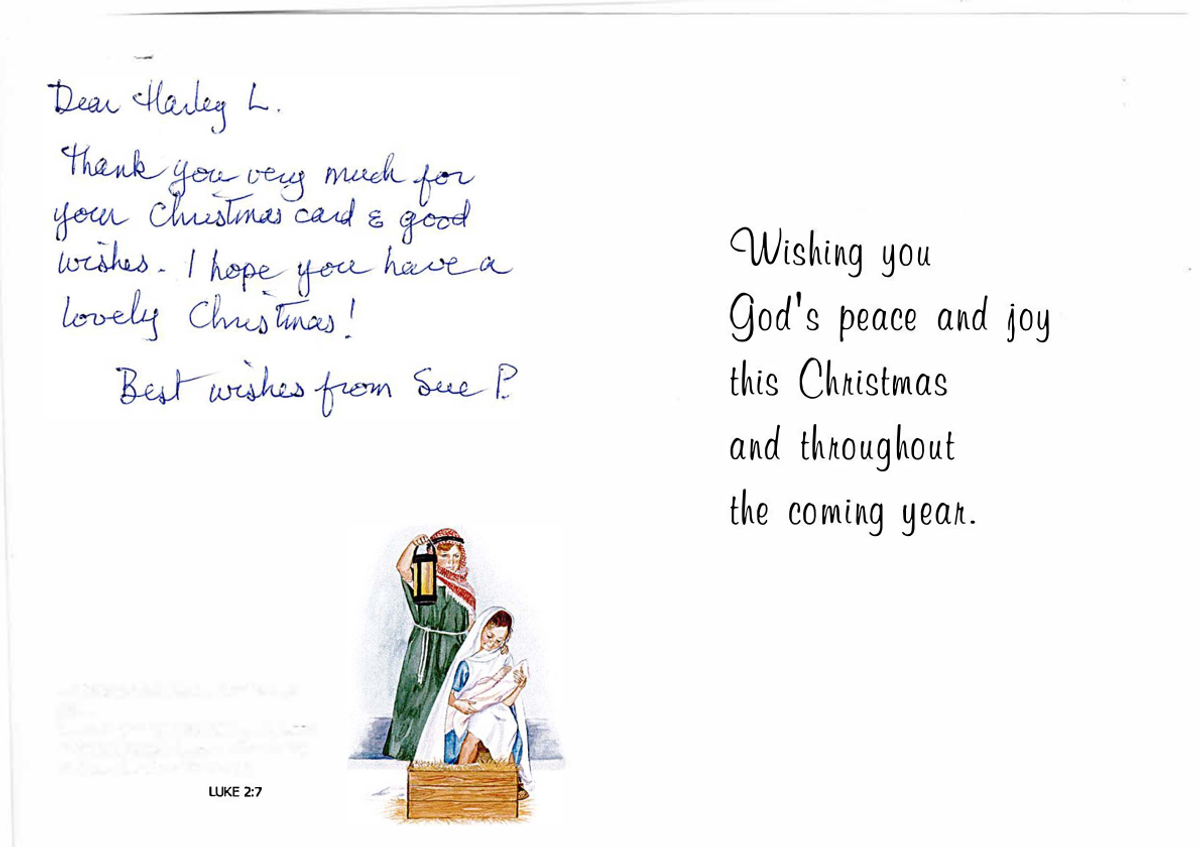 Dear Harley L.
Thank you very much for
your Christmas card & good
wishes. I hope you have a
lovely Christmas!
Best wishes from Sue P.
LUKE 2:7
Wishing you
God's peace and joy
this Christmas
and throughout
the coming year.